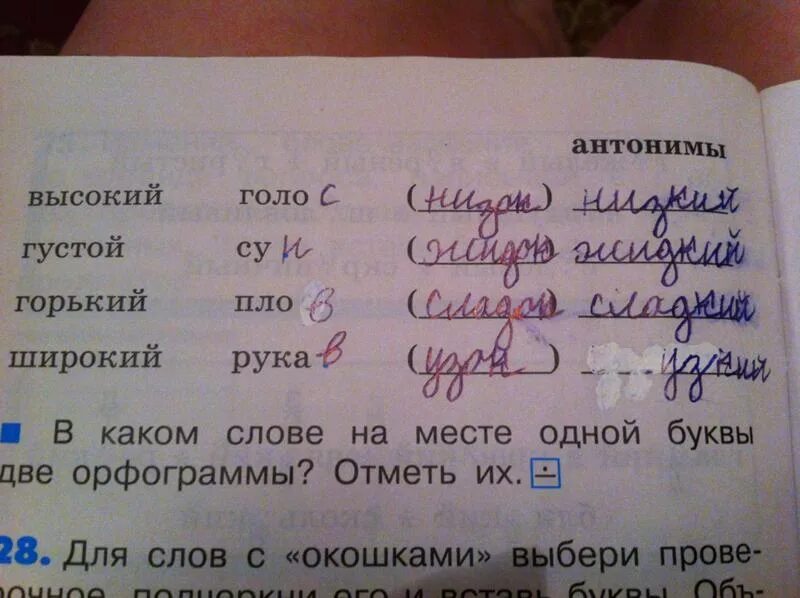 антонимы
высокий голос (низок) низкий
густой суп (жидок) жидкий
горький плов (сладок) сладкий
широкий рукав (узок) узкий
В каком слове на месте одной буквы
две орфограммы? Отметь их.
28. Для слов с «окошками» выбери прове-
рочное, подчеркни его и вставь буквы. Объ-